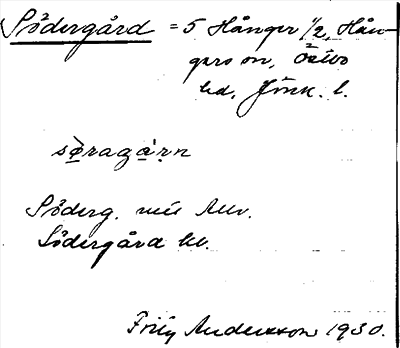 Södergård = 5 Hånger 1/2, Hån-
gers sn, Östbo
hd, Jönk. l.
sö̀ragàrn
Söderg. 
Södergård kv.
Andersson 1930.